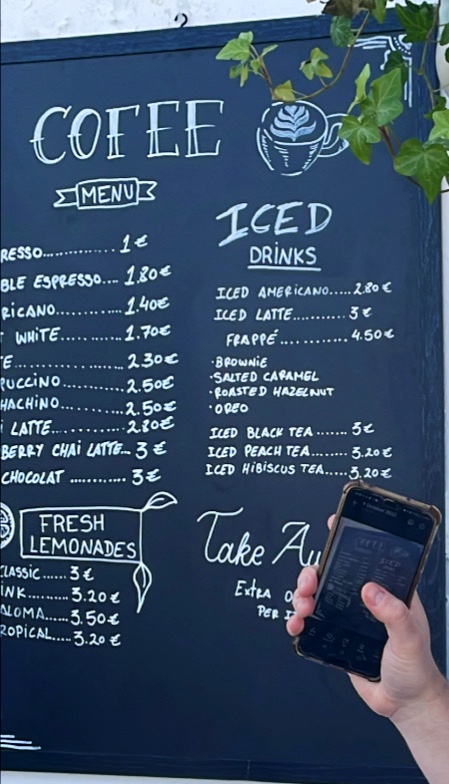 COFEE
MENU
RESSO............. 1€
BLE ESPRESSO.... 1.80€
RICANO.......... 1.40€
WHITE.......... 1.70€
E................ 2.30€
PUCCINO........ 2.50€
HACHINO......... 2.50€
I LATTE........... 2.80€
BERRY CHAI LATTE... 3€
CHOCOLAT ............ 3€
FRESH
LEMONADES
CLASSIC...... 3€
INK......... 3.20€
ALOMA..... 3.50€
ROPICAL..... 3.20€
ICED
DRINKS
ICED AMERICANO..... 2.80€
ICED LATTE.......... 3€
FRAPPÉ............ 4.50€
·BROWNIE
·SALTED CARAMEL
·ROASTED HAZELNUT
·OREO
ICED BLACK TEA ....... 3€
ICED PEACH TEA....... 3.20€
ICED HIBISCUS TEA..... 3.20€
Take
EXTRA
PER